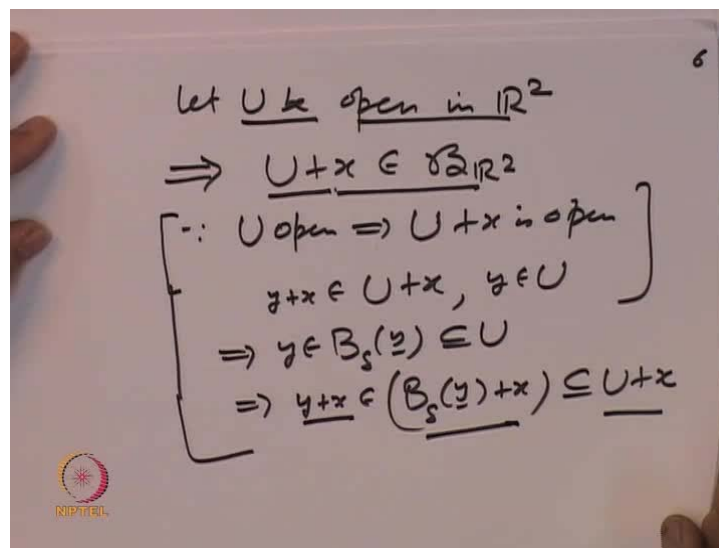 6
Let U be open in ℝ²
⟹ U+x ∈ ℬ_ℝ²
∵ U open ⟹ U+x is open
y+x ∈ U+x, y ∈ U
⟹ y ∈ B_δ(y) ⊆ U
⟹ y+x ∈ (B_δ(y)+x) ⊆ U+x
NPTEL